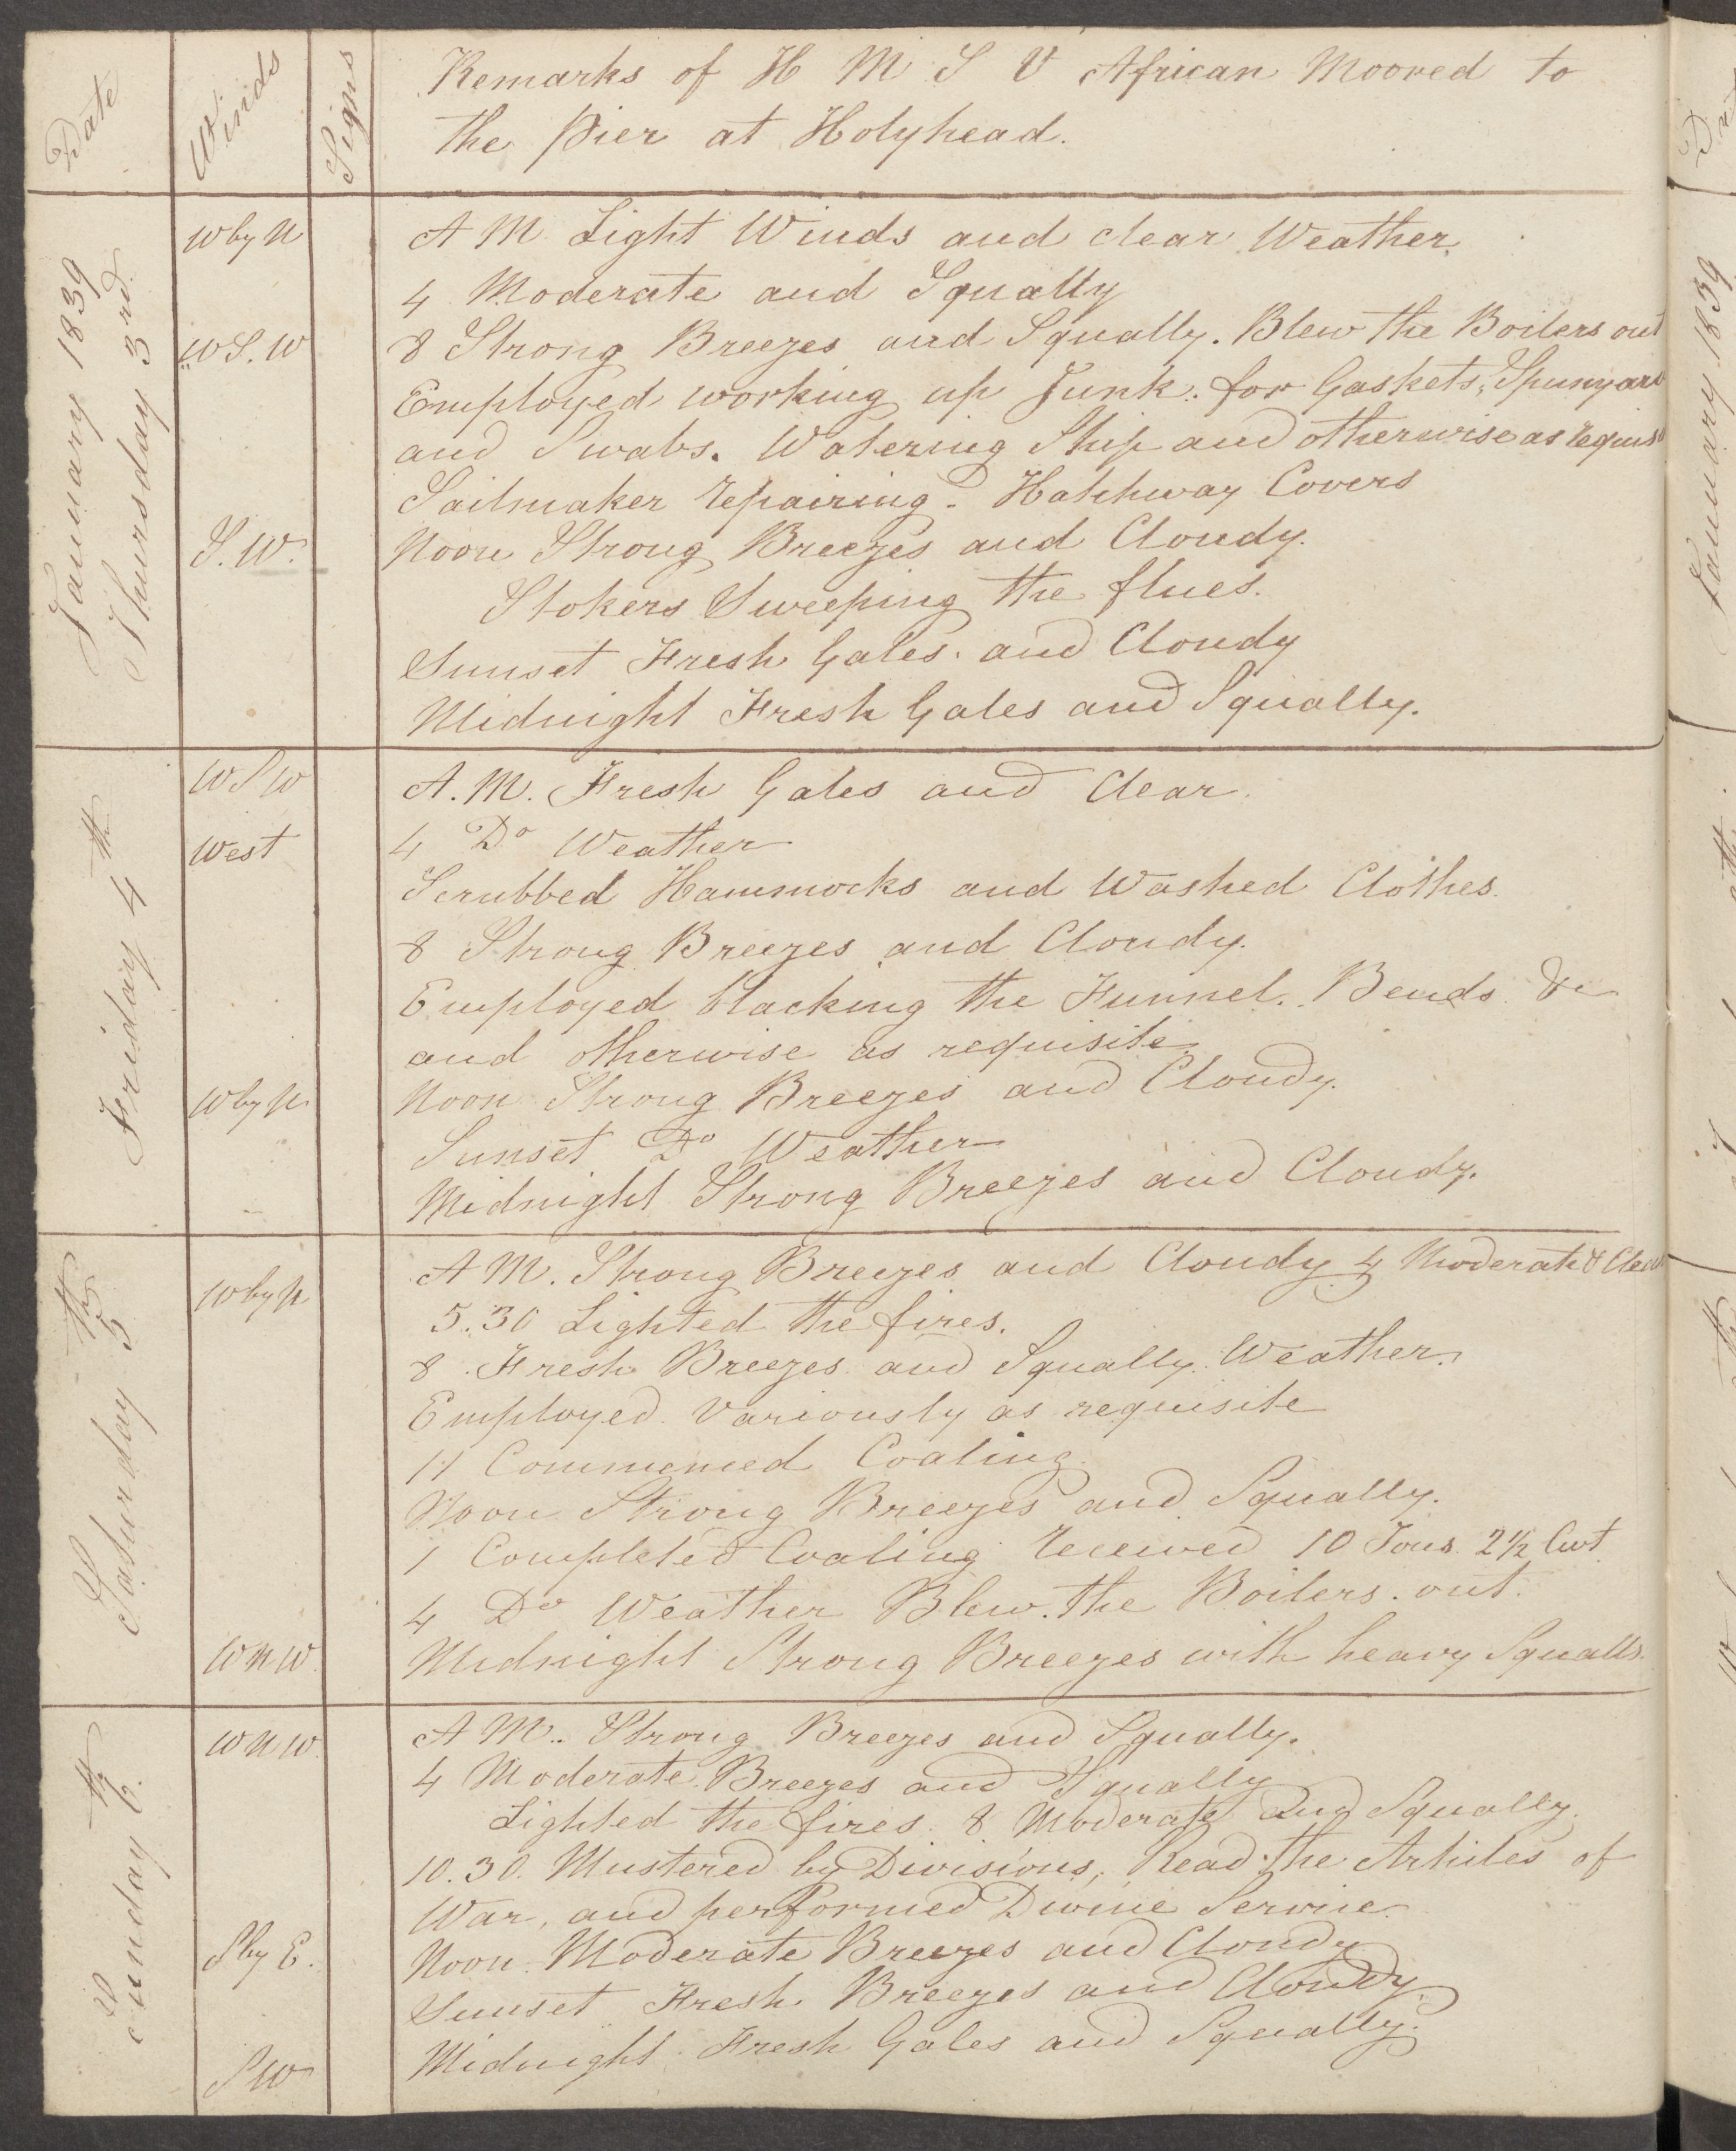 Date
Winds
Signs
Remarks of H M S V African Moored to
the Pier at Holyhead.
January 1839
Thursday 3rd
W by N
A M Light Winds and clear Weather.
4 Moderate and Squally
W S. W
8 Strong Breezes and Squally. Blew the Boilers out
Employed working up Junk. for Gaskets, Spunyarn
and Swabs. Watering Ship and otherwise as requis
Sailmaker repairing. Hatchway Covers
S. W.
Noon Strong Breezes and Cloudy.
Stokers Sweeping the flues.
Sunset Fresh Gales. and Cloudy
Midnight Fresh Gales and Squally.
Friday 4th
W S W
A. M. Fresh Gales and Clear.
West
4 Do Weather
Scrubbed Hammocks and Washed Clothes.
8 Strong Breezes and Cloudy.
Employed blacking the Funnel. Bends &c
and otherwise as requisite
W by N
Noon Strong Breezes and Cloudy.
Sunset Do Weather
Midnight Strong Breezes and Cloudy.
Saturday 5th
W by N
A M. Strong Breezes and Cloudy 4 Moderate & Clear
5.30 Lighted the fires.
8 Fresh Breezes and Squally Weather.
Employed Variously as requisite
11 Commenced Coaling.
Noon Strong Breezes and Squally.
1 Completed Coaling received 10 Tons 2½ Cwt
4 Do Weather Blew the Boilers. out.
W N W.
Midnight Strong Breezes with heavy Squalls.
Sunday 6th.
W N W.
A M.. Strong Breezes and Squally.
4 Moderate Breezes and Squally
Lighted the fires. 8 Moderate and Squally.
10.30. Mustered by Divisions, Read the Articles of
War, and performed Divine Service.
S by E.
Noon. Moderate Breezes and Cloudy
Sunset Fresh Breezes and Cloudy.
S W
Midnight. Fresh Gales and Squally.
January 1839